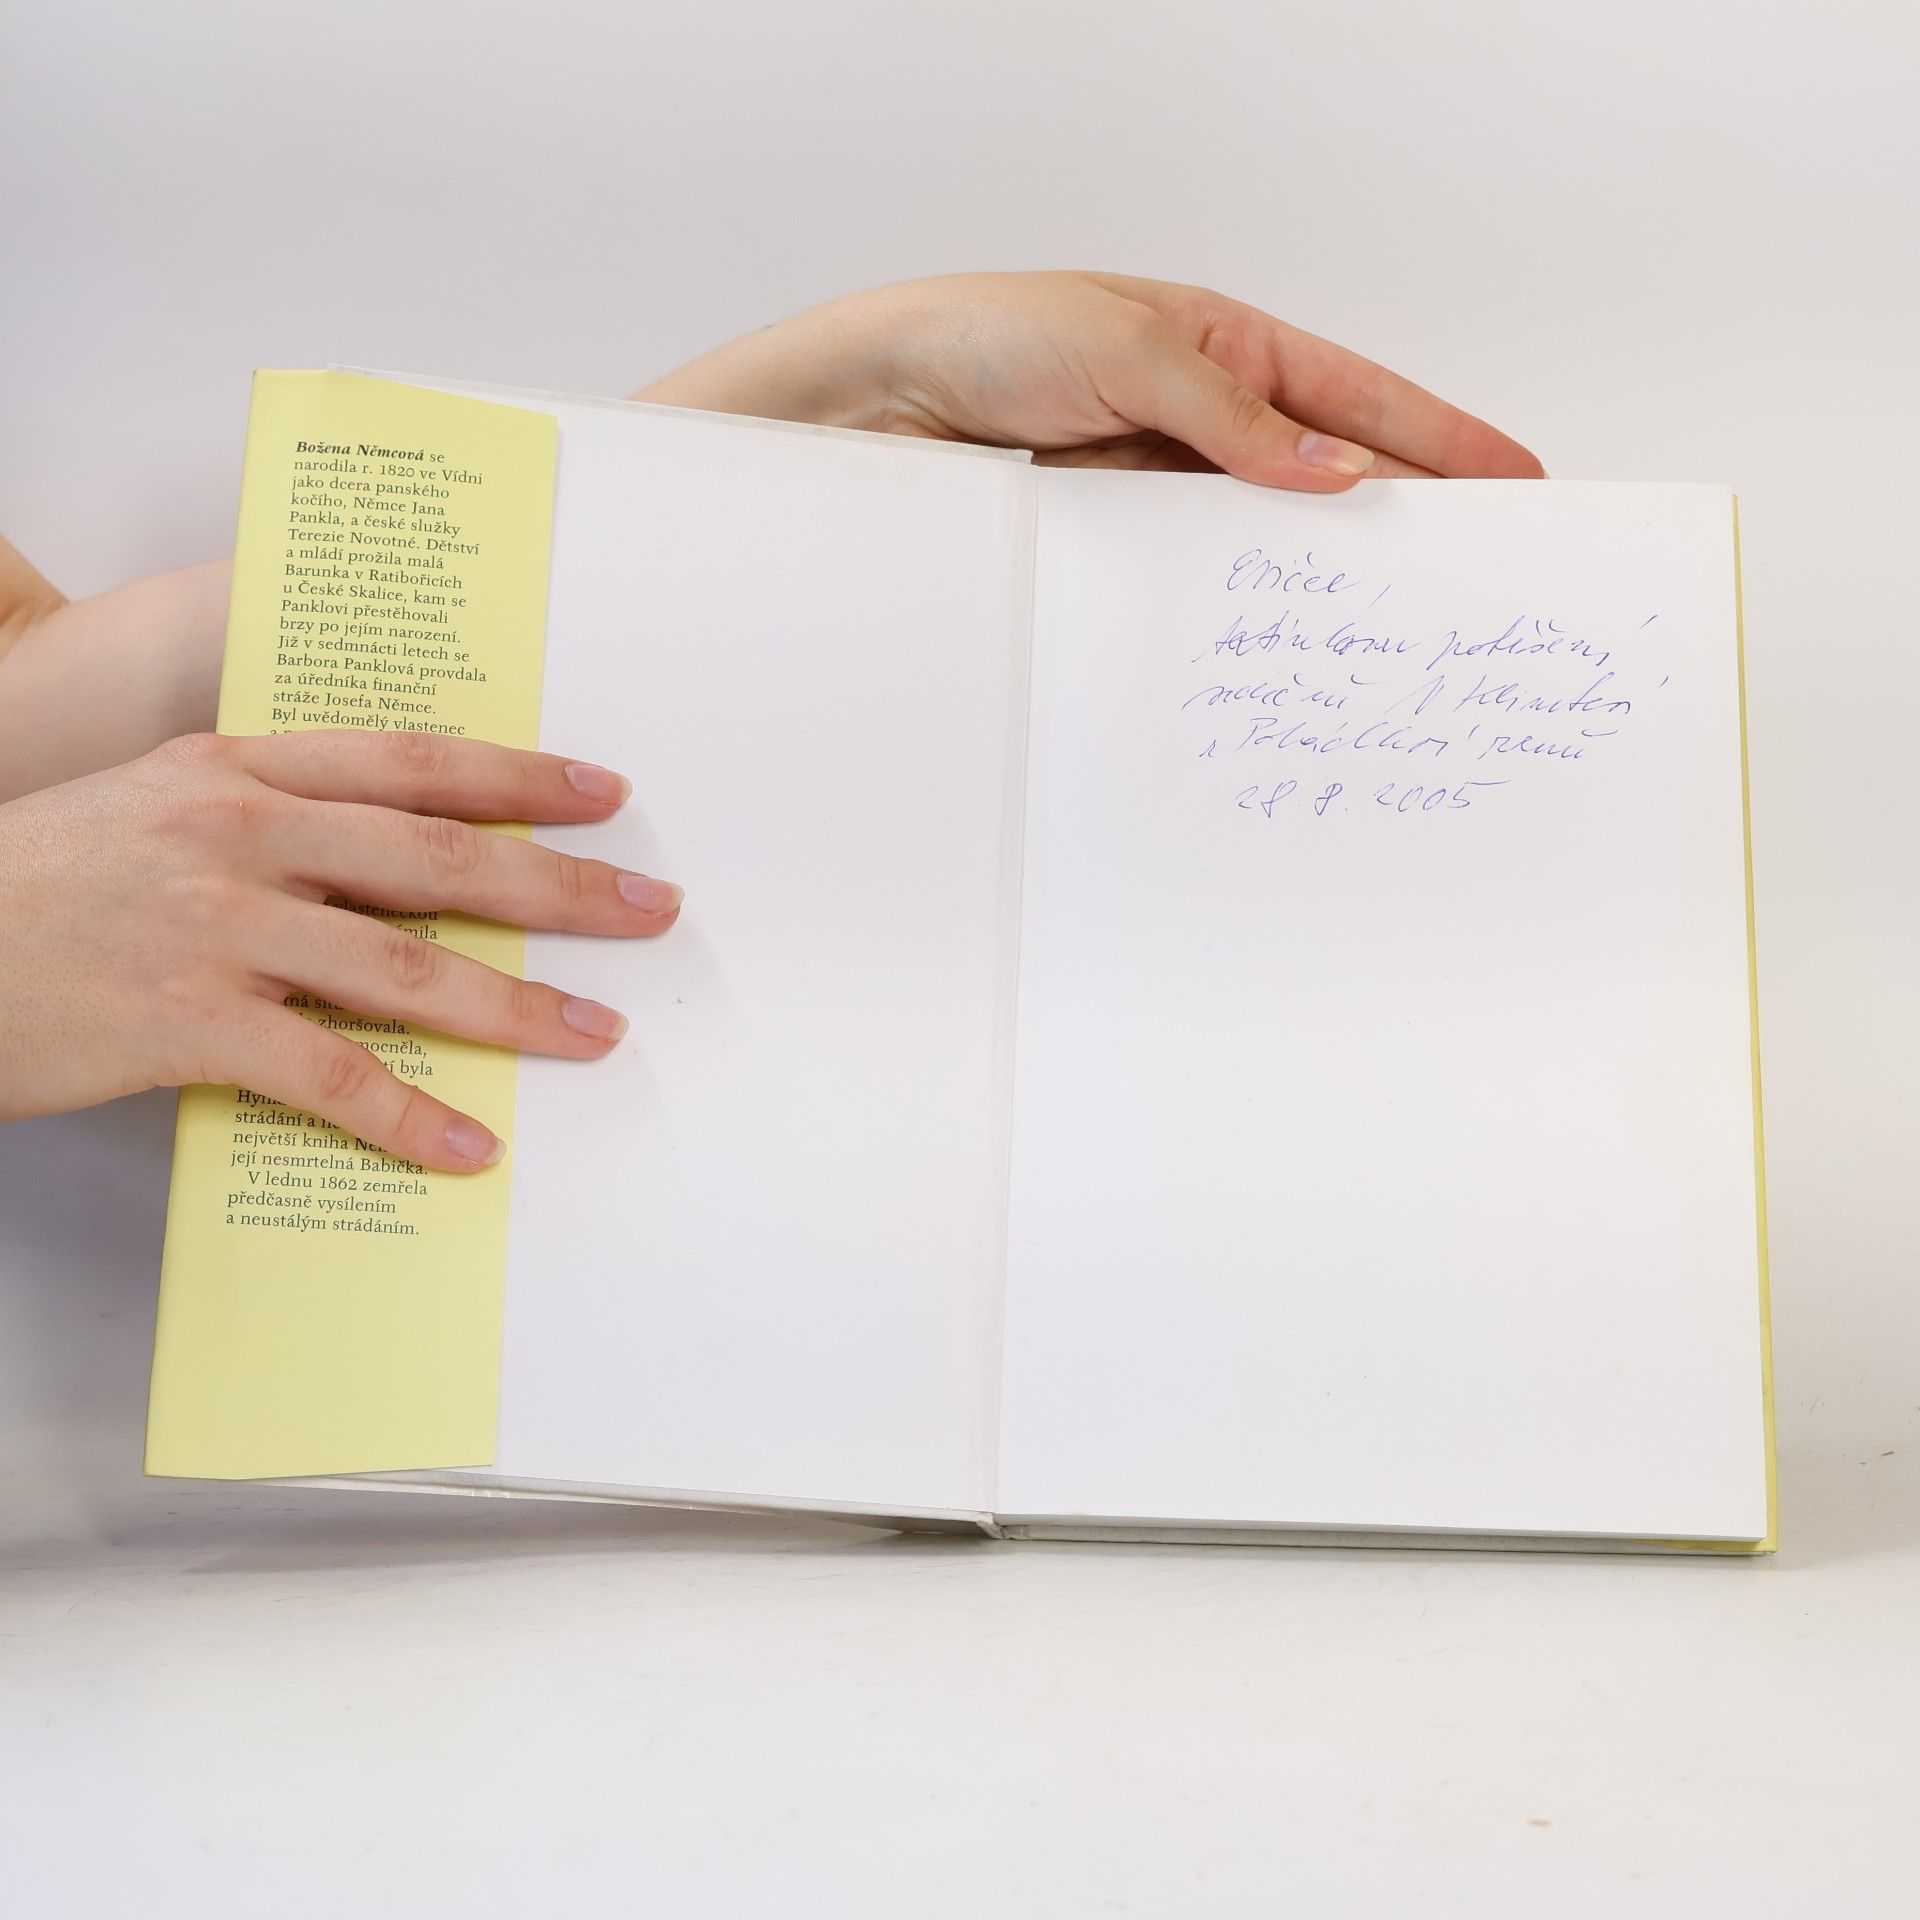 Božena Němcová se
narodila r. 1820 ve Vídni
jako dcera panského
kočího, Němce Jana
Pankla, a české služky
Terezie Novotné. Dětství
a mládí prožila malá
Barunka v Ratibořicích
u České Skalice, kam se
Panklovi přestěhovali
brzy po jejím narození.
Již v sedmnácti letech se
Barbora Panklová provdala
za úředníka finanční
stráže Josefa Němce.
Byl uvědomělý vlastenec
vlasteneckou
zhoršovala.
byla
strádání a
největší kniha
její nesmrtelná Babička.
V lednu 1862 zemřela
předčasně vysílením
a neustálým strádáním.
Evičce,
tatínkovu potěšení
28. 8. 2005